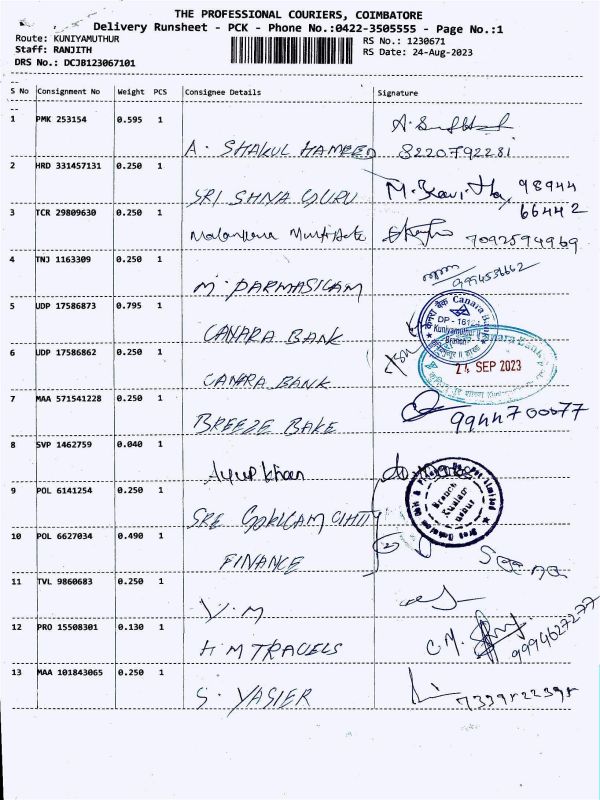 THE PROFESSIONAL COURIERS, COIMBATORE
Delivery Runsheet - PCK - Phone No.:0422-3505555 - Page No.:1
Route: KUNIYAMUTHUR
RS No.: 1230671
Staff: RANJITH
RS Date: 24-Aug-2023
DRS No.: DCJB123067101
S No Consignment No Weight PCS Consignee Details Signature
1 PMK 253154 0.595 1
A. SHAKUL HAMEED 8220792281
2 HRD 331457131 0.250 1
SRI SHNA GURU 98944
66442
3 TCR 29809630 0.250 1
7092594969
4 TNJ 1163309 0.250 1
M. PARMASILAM 9994536662
5 UDP 17586873 0.795 1
Canara Bank
DP - 1612
Kuniyamuthur II
Branch
CANARA BANK
6 UDP 17586862 0.250 1
Canara Bank
SEP 2023
CANARA BANK
7 MAA 571541228 0.250 1
BREEZE BAKE 9944700077
8 SVP 1462759 0.040 1
Ayup khan
9 POL 6141254 0.250 1
SRE GOKULAM CHITTY
Branch
10 POL 6627034 0.490 1
FINANCE
11 TVL 9860683 0.250 1
V. M
12 PRO 15508301 0.130 1
H M TRAVELS C.M. 9994627277
13 MAA 101843065 0.250 1
S. YASIER 7339822398